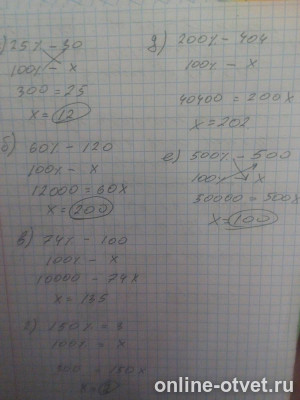 а) 25% - 30
100% - x
300 = 25
x = 12
б) 60% - 120
100% - x
12000 = 60x
x = 200
в) 74% - 100
100% - x
10000 - 74x
x = 135
г) 150% = 3
100% = x
300 = 150x
д) 200% - 404
100% - x
40400 = 200x
x = 202
е) 500% - 500
100% - x
50000 = 500x
x = 100
online-otvet.ru